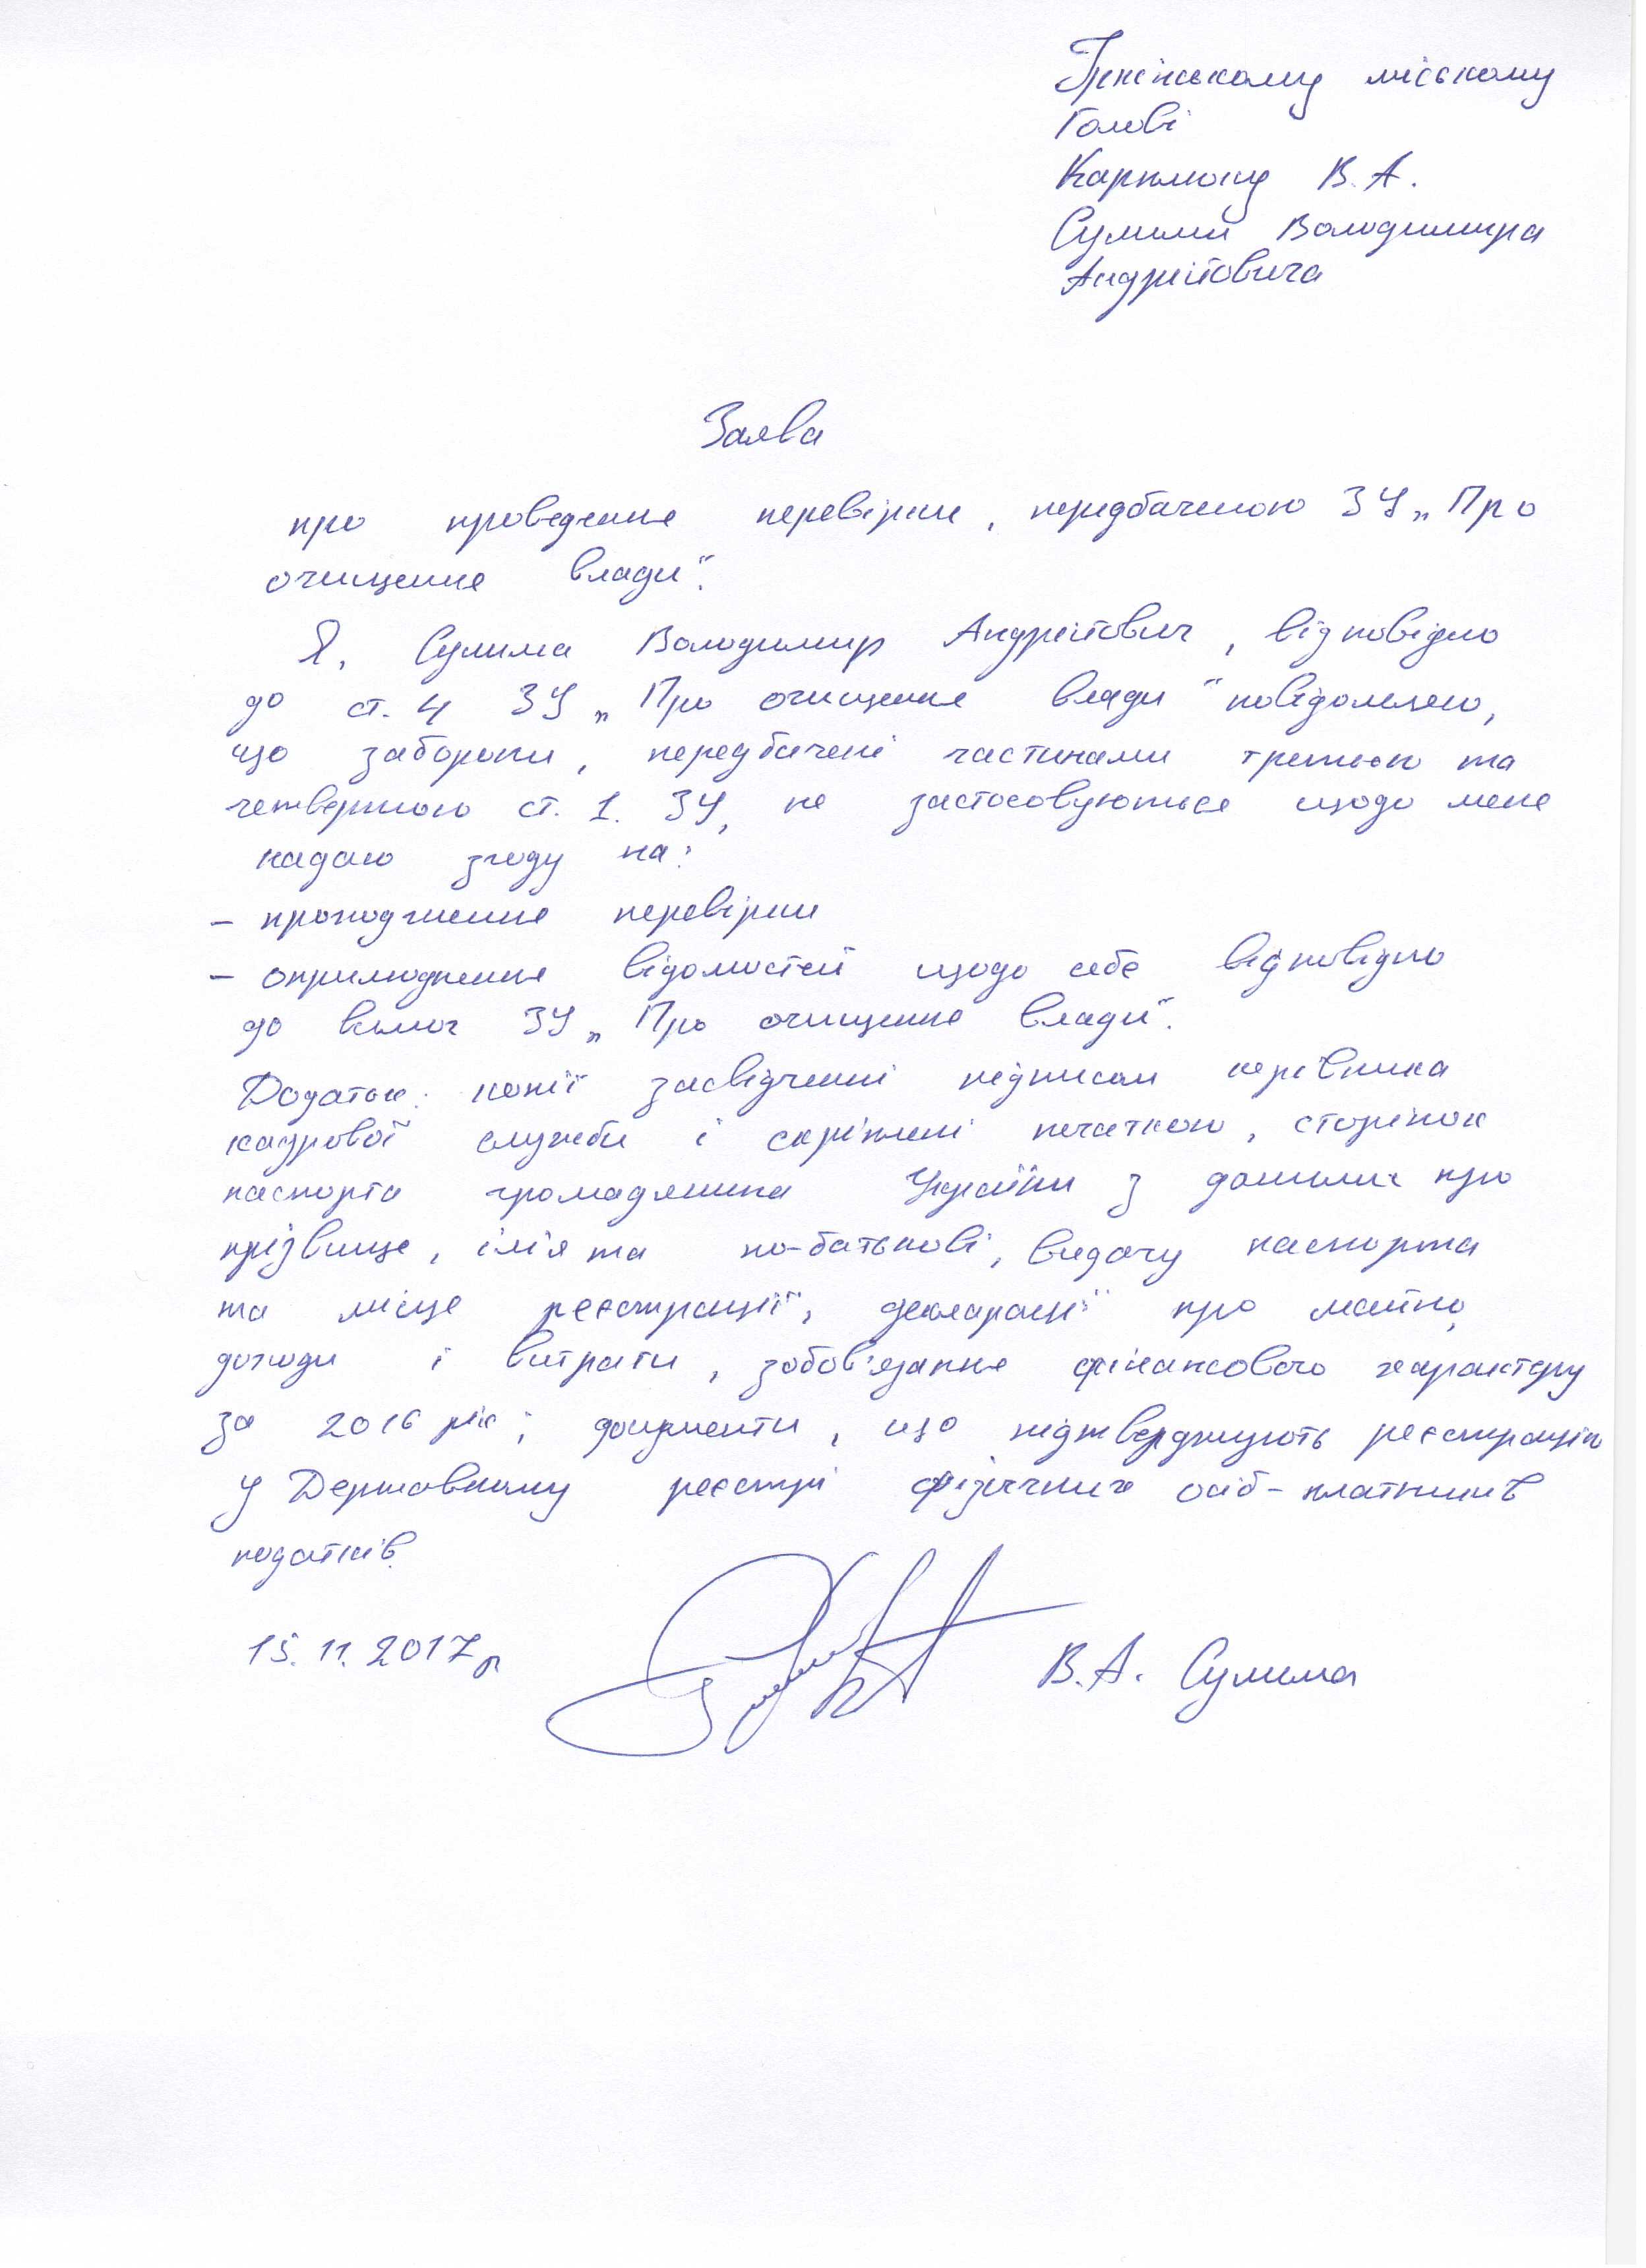 Ірпінському міському
Голові
Карплюку В.А.
Сулими Володимира
Андрійовича
Заява
про проведення перевірки, передбаченою ЗУ „Про
очищення влади".
Я, Сулима Володимир Андрійович, відповідно
до ст. 4 ЗУ „Про очищення влади" повідомляю,
що заборони, передбачені частинами третьою та
четвертою ст. 1. ЗУ, не застосовуються щодо мене
надаю згоду на:
- проходження перевірки
- оприлюднення відомостей щодо себе відповідно
до вимог ЗУ „Про очищення влади".
Додаток: копії засвідченні підписом керівника
кадрової служби і скріплені печаткою, сторінок
паспорта громадянина України з данними про
прізвище, ім'я та по-батькові, видачу паспорта
та місце реєстрації, декларації про майно,
доходи і витрати, зобов'язання фінансового характеру
за 2016 рік; документи, що підтверджують реєстрацію
у Державному реєстрі фізичних осіб-платників
податків.
15.11.2017р
В.А. Сулима